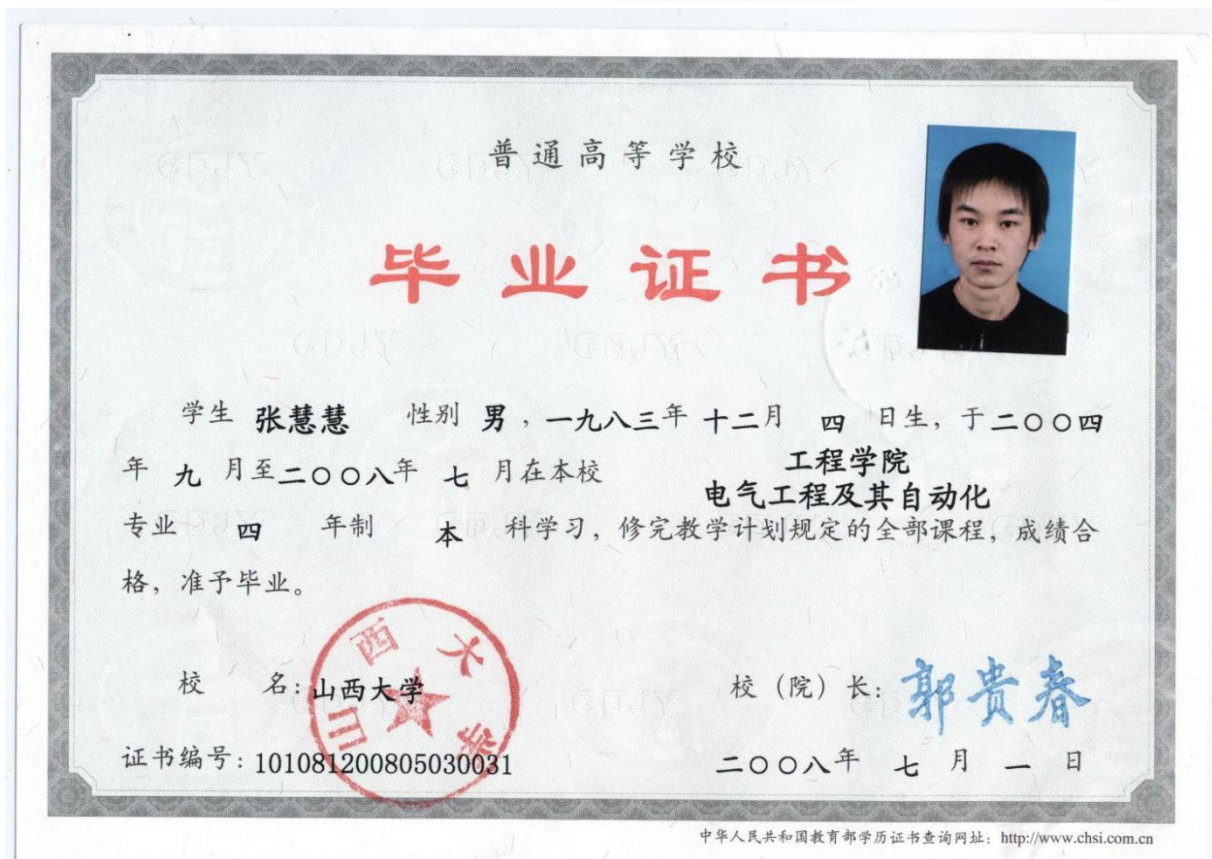 普通高等学校
毕业证书
学生 张慧慧 性别 男，一九八三年 十二月 四 日生，于二〇〇四
年 九 月至二〇〇八年 七 月在本校 工程学院
电气工程及其自动化
专业 四 年制 本 科学习，修完教学计划规定的全部课程，成绩合
格，准予毕业。
山西大学
校 名：山西大学 校（院）长：郭贵春
证书编号：101081200805030031 二〇〇八年 七 月 一 日
中华人民共和国教育部学历证书查询网址：http://www.chsi.com.cn